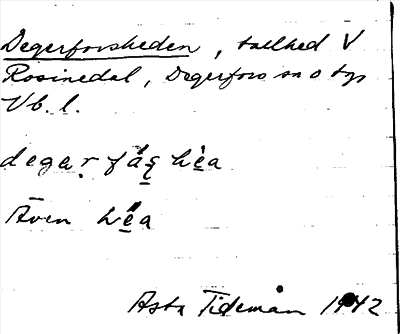 Degerforsheden, tallhed V
Rosinedal, Degerfors sn o tgs
Vb. l.
degar fá̱ş hè̱a
Även hè̱a
Asta Tideman 1942